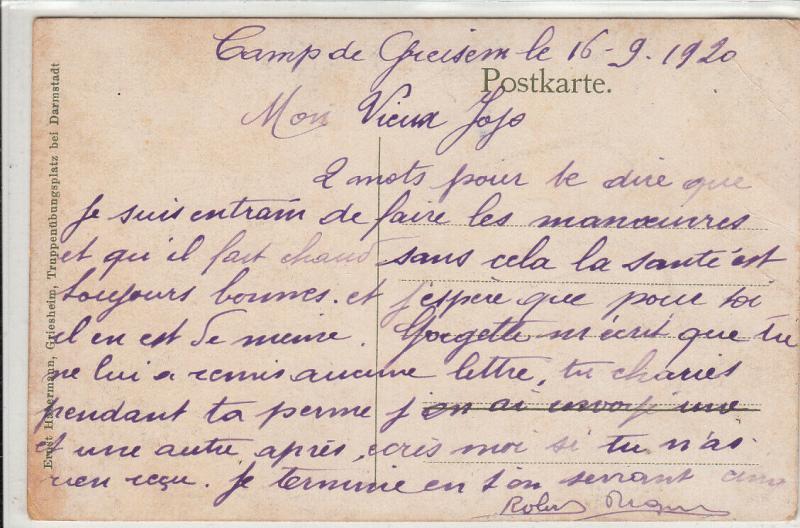 Camp de Greisem le 16-9.1920
Postkarte.
Mon Vieux Jojo
2 mots pour te dire que
je suis entrain de faire les manœuvres
et qu'il fait chaud sans cela la santé est
toujours bonnes. et j'espere que pour toi
il en est de meme. m'écrit que tu
ne lui a remis aucune lettre, tu charies
pendant ta perme j'en ai envoyé une
et une autre après, ecris moi si tu n'as
rien reçu. Je termine en t'on serrant
Robert
Ernst Habermann, Griesheim, Truppenübungsplatz bei Darmstadt